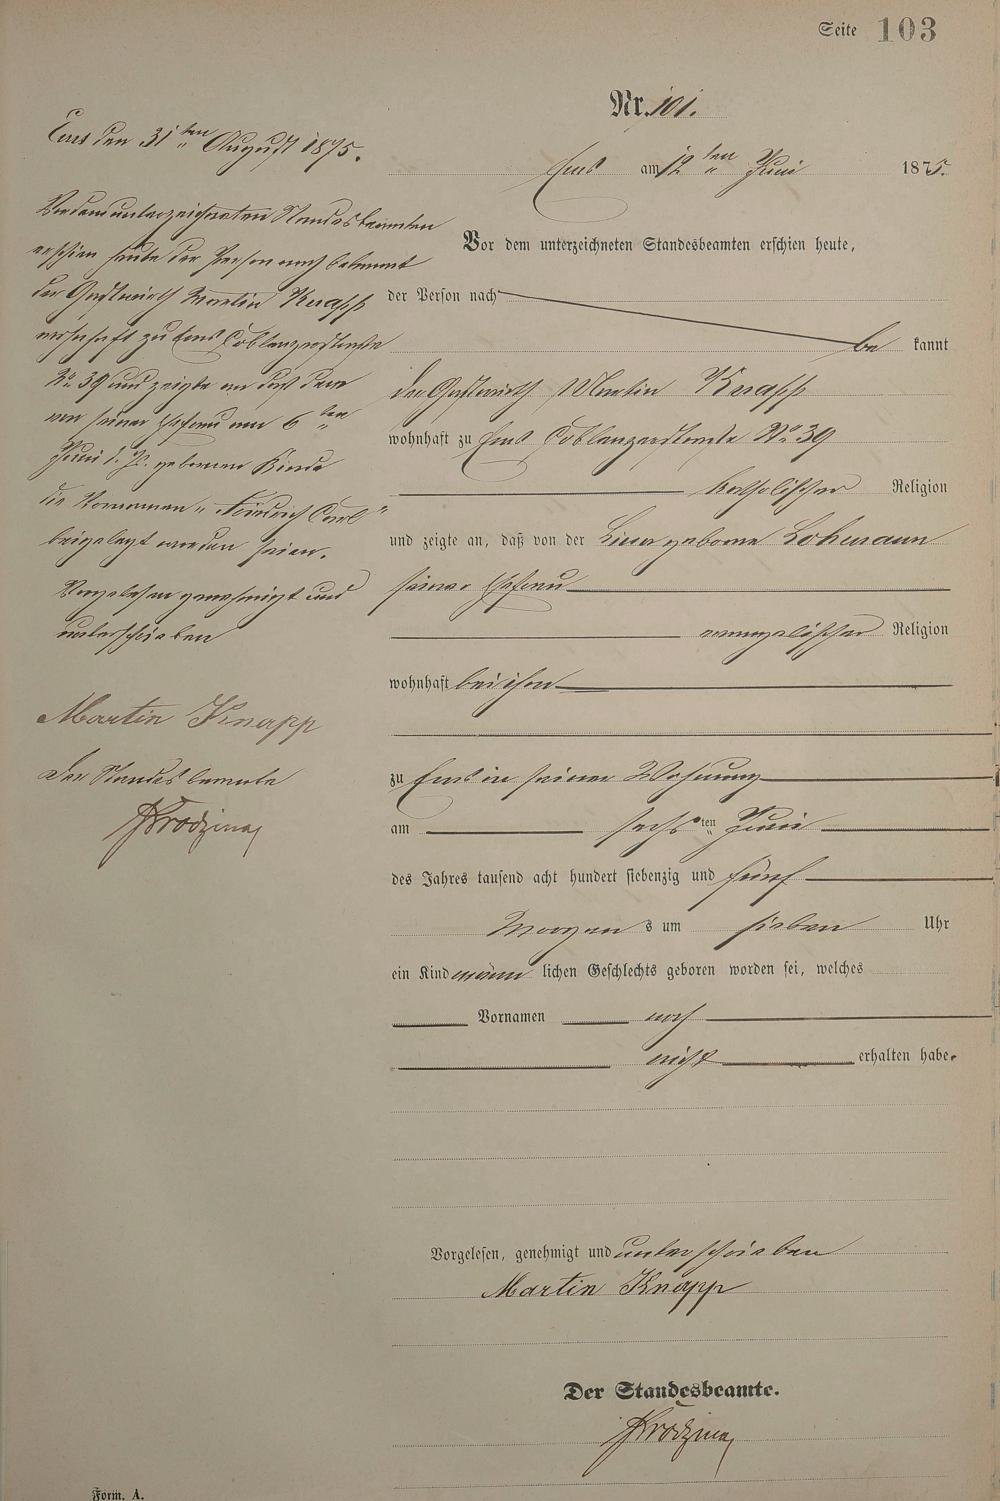 Seite 103
Nr. 101.
Ems am 12ten Juni 1875.
Vor dem unterzeichneten Standesbeamten erschien heute,
der Person nach
be kannt
der Gastwirth Martin Knapp
wohnhaft zu Ems Coblenzerstraße No 39
katholischer Religion
und zeigte an, daß von der Lina geborene Lohmann
seiner Ehefrau
evangelischer Religion
wohnhaft bei ihm
zu Ems in seiner Wohnung
am sechsten Juni
des Jahres tausend acht hundert siebenzig und fünf
Morgen s um sieben Uhr
ein Kind männ lichen Geschlechts geboren worden sei, welches
Vornamen noch
nicht erhalten habe.
Vorgelesen, genehmigt und unterschrieben
Martin Knapp
Der Standesbeamte.
Ems den 31ten August 1875.
Vor dem unterzeichneten Standesbeamten
erschien heute der Person nach bekannt
der Gastwirth Martin Knapp
wohnhaft zu Ems Coblenzerstraße
No 39 und zeigte an daß dem
von seiner Ehefrau am 6ten
Juni d. Js. geborenen Kinde
die Vornamen „Friedrich Carl"
beigelegt worden seien.
Vorgelesen genehmigt und
unterschrieben
Martin Knapp
Der Standesbeamte
Form. A.